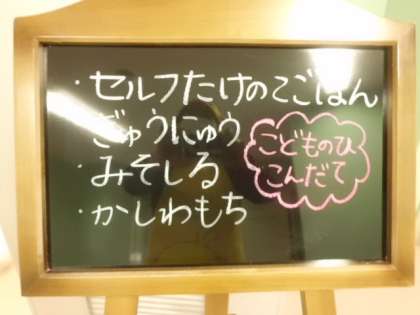 ・セルフたけのこごはん
ぎゅうにゅう
・みそしる
・かしわもち
こどものひ
こんだて